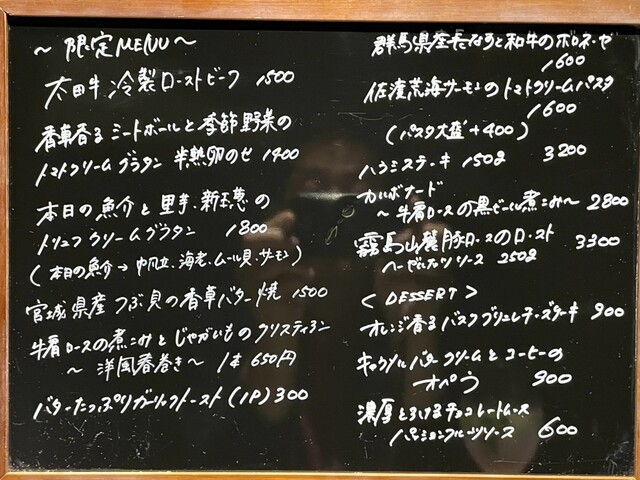 ～限定MENU～
太田牛 冷製ローストビーフ 1500
香草香るミートボールと季節野菜の
トマトクリームグラタン 半熟卵のせ 1400
本日の魚介と里芋、新玉葱の
トリュフクリームグラタン 1800
(本日の魚介→帆立、海老、ムール貝、サーモン)
宮城県産つぶ貝の香草バター焼 1500
牛肩ロースの煮こみとじゃがいものクリスティアン
～洋風春巻き～ 1本650円
バターたっぷりガーリックトースト(1P)300
群馬県産長なすと和牛のボロネーゼ
1600
佐渡荒海サーモンのトマトクリームパスタ
1600
(パスタ大盛+400)
ハラミステーキ 150g 3200
カルボナード
～牛肩ロースの黒ビール煮こみ～ 2800
霧島山麓豚ロースのロースト
250g 3300
<DESSERT>
オレンジ香るバスクブリュレチーズケーキ 900
キャラメルバタークリームとコーヒーの
オペラ 900
濃厚とろけるチョコレートムース
パッションフルーツソース 600